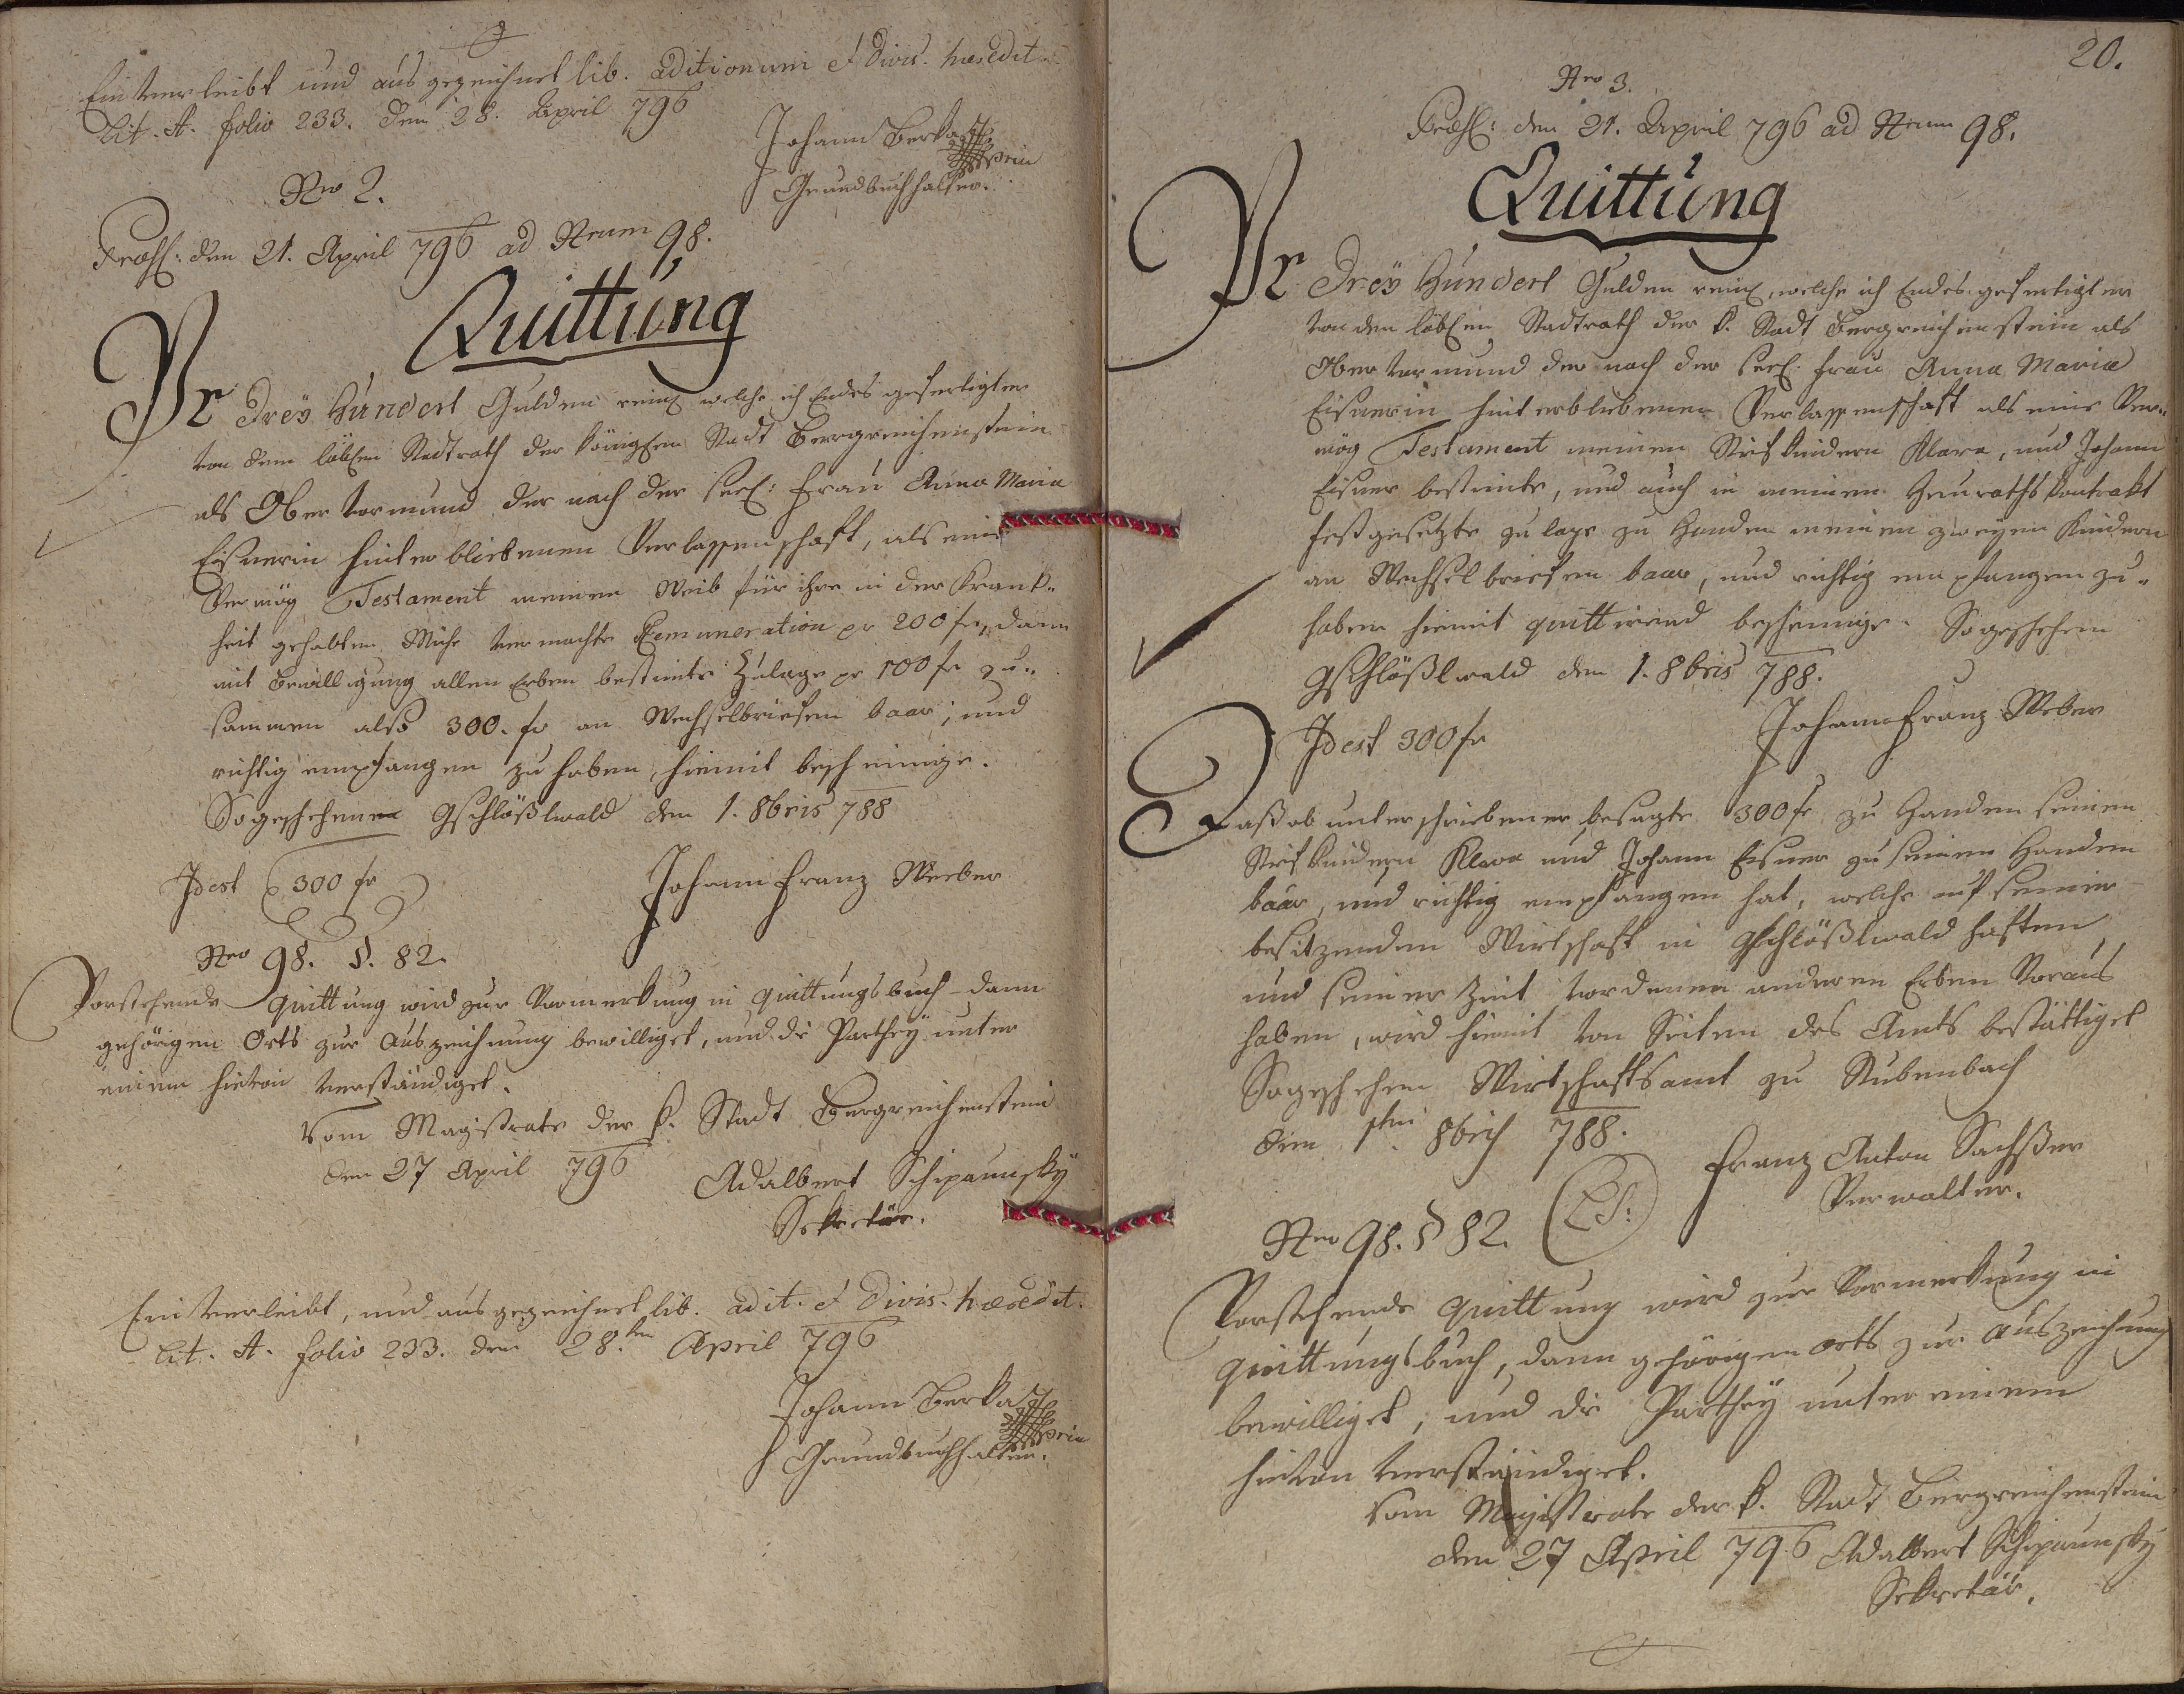 Einverleibt und ausgezeichnet lib. aditionum et divis. haeredit.
Lit. A. folio 233. den 28. April 796
Johann Berka
Grundbuchhalter.
Nro 2.
Praes: den 21. April 796 ad Nrum 98.
Quittung
Pr Drey Hundert Gulden rein, welche ich Endes gefertigter
von dem löbln Stadtrath der königlen Stadt Bergreichenstein
als Obervormund der nach der seel: Frau Anna Maria
Eisnerin hinterbliebenen Verlassenschaft, als eine
Vermög Testament meinem Weib für ihre in der Krank-
heit gehabten Mühe vermachte Remuneration pr 200 fr, dann
mit Bewilligung allen Erben bestimte Zulage pr 100 fr zu-
sammen also 300. fr an Wechselbriefen baar, und
richtig empfangen zu haben, hiemit bescheinige.
So geschehen Gschlößlwald den 1. 8bris 788
Idest 300 fr
Johann Franz Weeber
Nro 98. §. 82.
Vorstehende Quittung wird zur Vormerkung in Quittungsbuch dann
gehörigen Orts zur Auszeichnung bewilliget, und die Parthey unter
einem hievon verständiget.
Vom Magistrate der k. Stadt Bergreichenstein
den 27 April 796
Adalbert Schipaunsky
Sekretär.
Einverleibt, und ausgezeichnet lib. adit. et divis. haeredit.
Lit. A. folio 233. den 28.ten April 796
Johann Berka
Grundbuchhalter.
20.
Nro 3.
Praes: den 21. April 796 ad Nrum 98.
Quittung
Pr Drey Hundert Gulden rein, welche ich Endes gefertigter
von dem löblen Stadtrath der k. Stadt Bergreichenstein als
Obervormund der nach der seel. Frau Anna Maria
Eisnerin hinterbliebenen Verlassenschaft als eine Ver-
mög Testament meinen Stiefkindern Klara, und Johann
Eisner bestimte, und auch in meinem Heuraths Kontrakt
festgesetzte Zulage zu Handen meinen zweyen Kindern
an Wechselbriefen baar, und richtig empfangen zu-
haben hiemit quittirend bescheinige. So geschehen
Gschlößlwald den 1. 8bris 788.
Idest 300 fr
Johann Franz Weber
Daß ob unterschriebener besagte 300 fr zu Handen seinen
Stiefkindern Klara und Johann Eisner zu seinen Handen
baar, und richtig empfangen hat, welche auf seiner
besitzenden Wirtschaft in Gschlößlwald haften,
und seiner Zeit vor denen anderen Erben Voraus
haben, wird hiemit von Seiten des Amts bestättiget
So geschehen Wirtschaftsamt zu Stubenbach
den 1ten 8bris 788.
Franz Anton Sachßer
Verwalter.
Nro 98. § 82.
LS:
Vorstehende Quittung wird zur Vormerkung in
Quittungsbuch, dann gehörigen Orts zur Auszeichnung
bewilliget, und die Parthey unter einem
hievon verständiget.
Vom Magistrate der k. Stadt Bergreichenstein
den 27 April 796 Adalbert Schipaunsky
Sekretär.